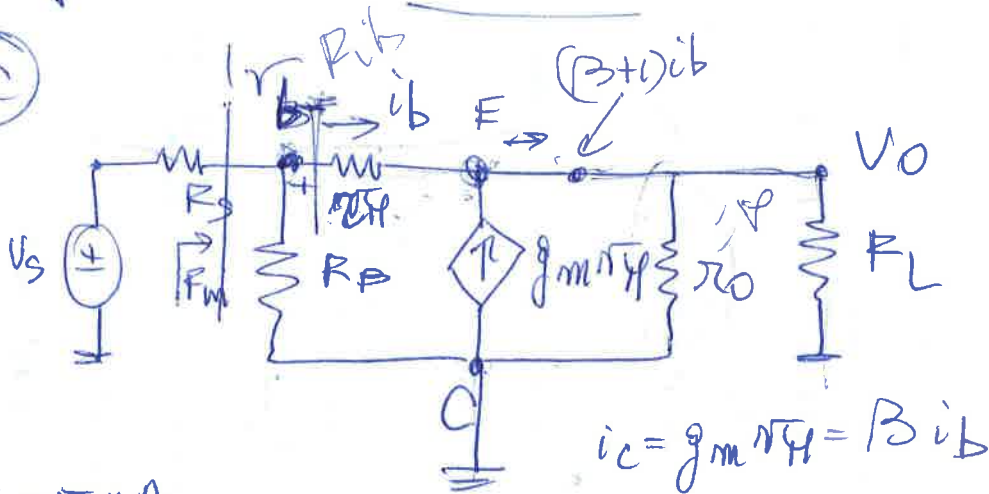 Rib
(β+1)ib
rb
ib
E
VO
RS
rπ
Vs
Rin
RB
gmvπ
r0
RL
C
ic = gm vπ = β ib